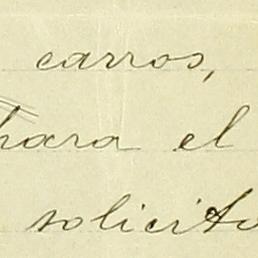 carros,
para el
solicito